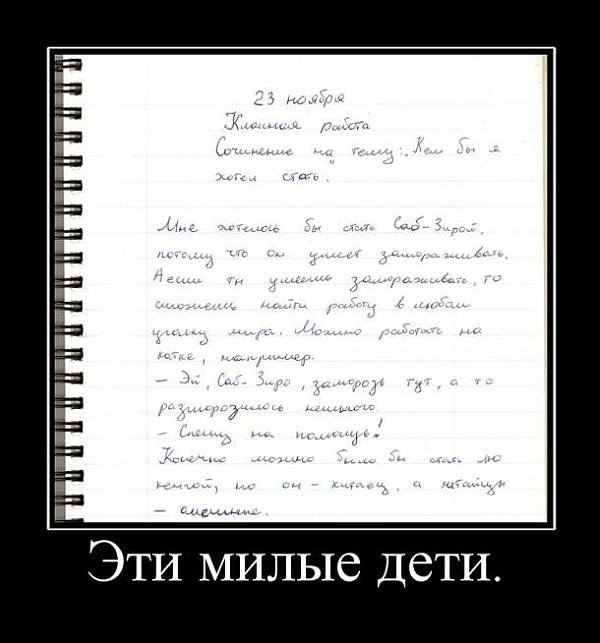 23 ноября
Классная работа
Сочинение на тему: "Кем бы я
хотел стать.
Мне хотелось бы стать Саб-Зирой,
потому что он умеет замораживать.
А если ты умеешь замораживать, то
сможешь найти работу в любом
уголку мира. Можно работать на
катке, например.
— Эй, Саб-Зиро, заморозь тут, а то
разморозилось немного.
— Спешу на помощь!
Конечно можно было бы стать лю
кенгой, но он – китаец, а китайцы
—
Эти милые дети.